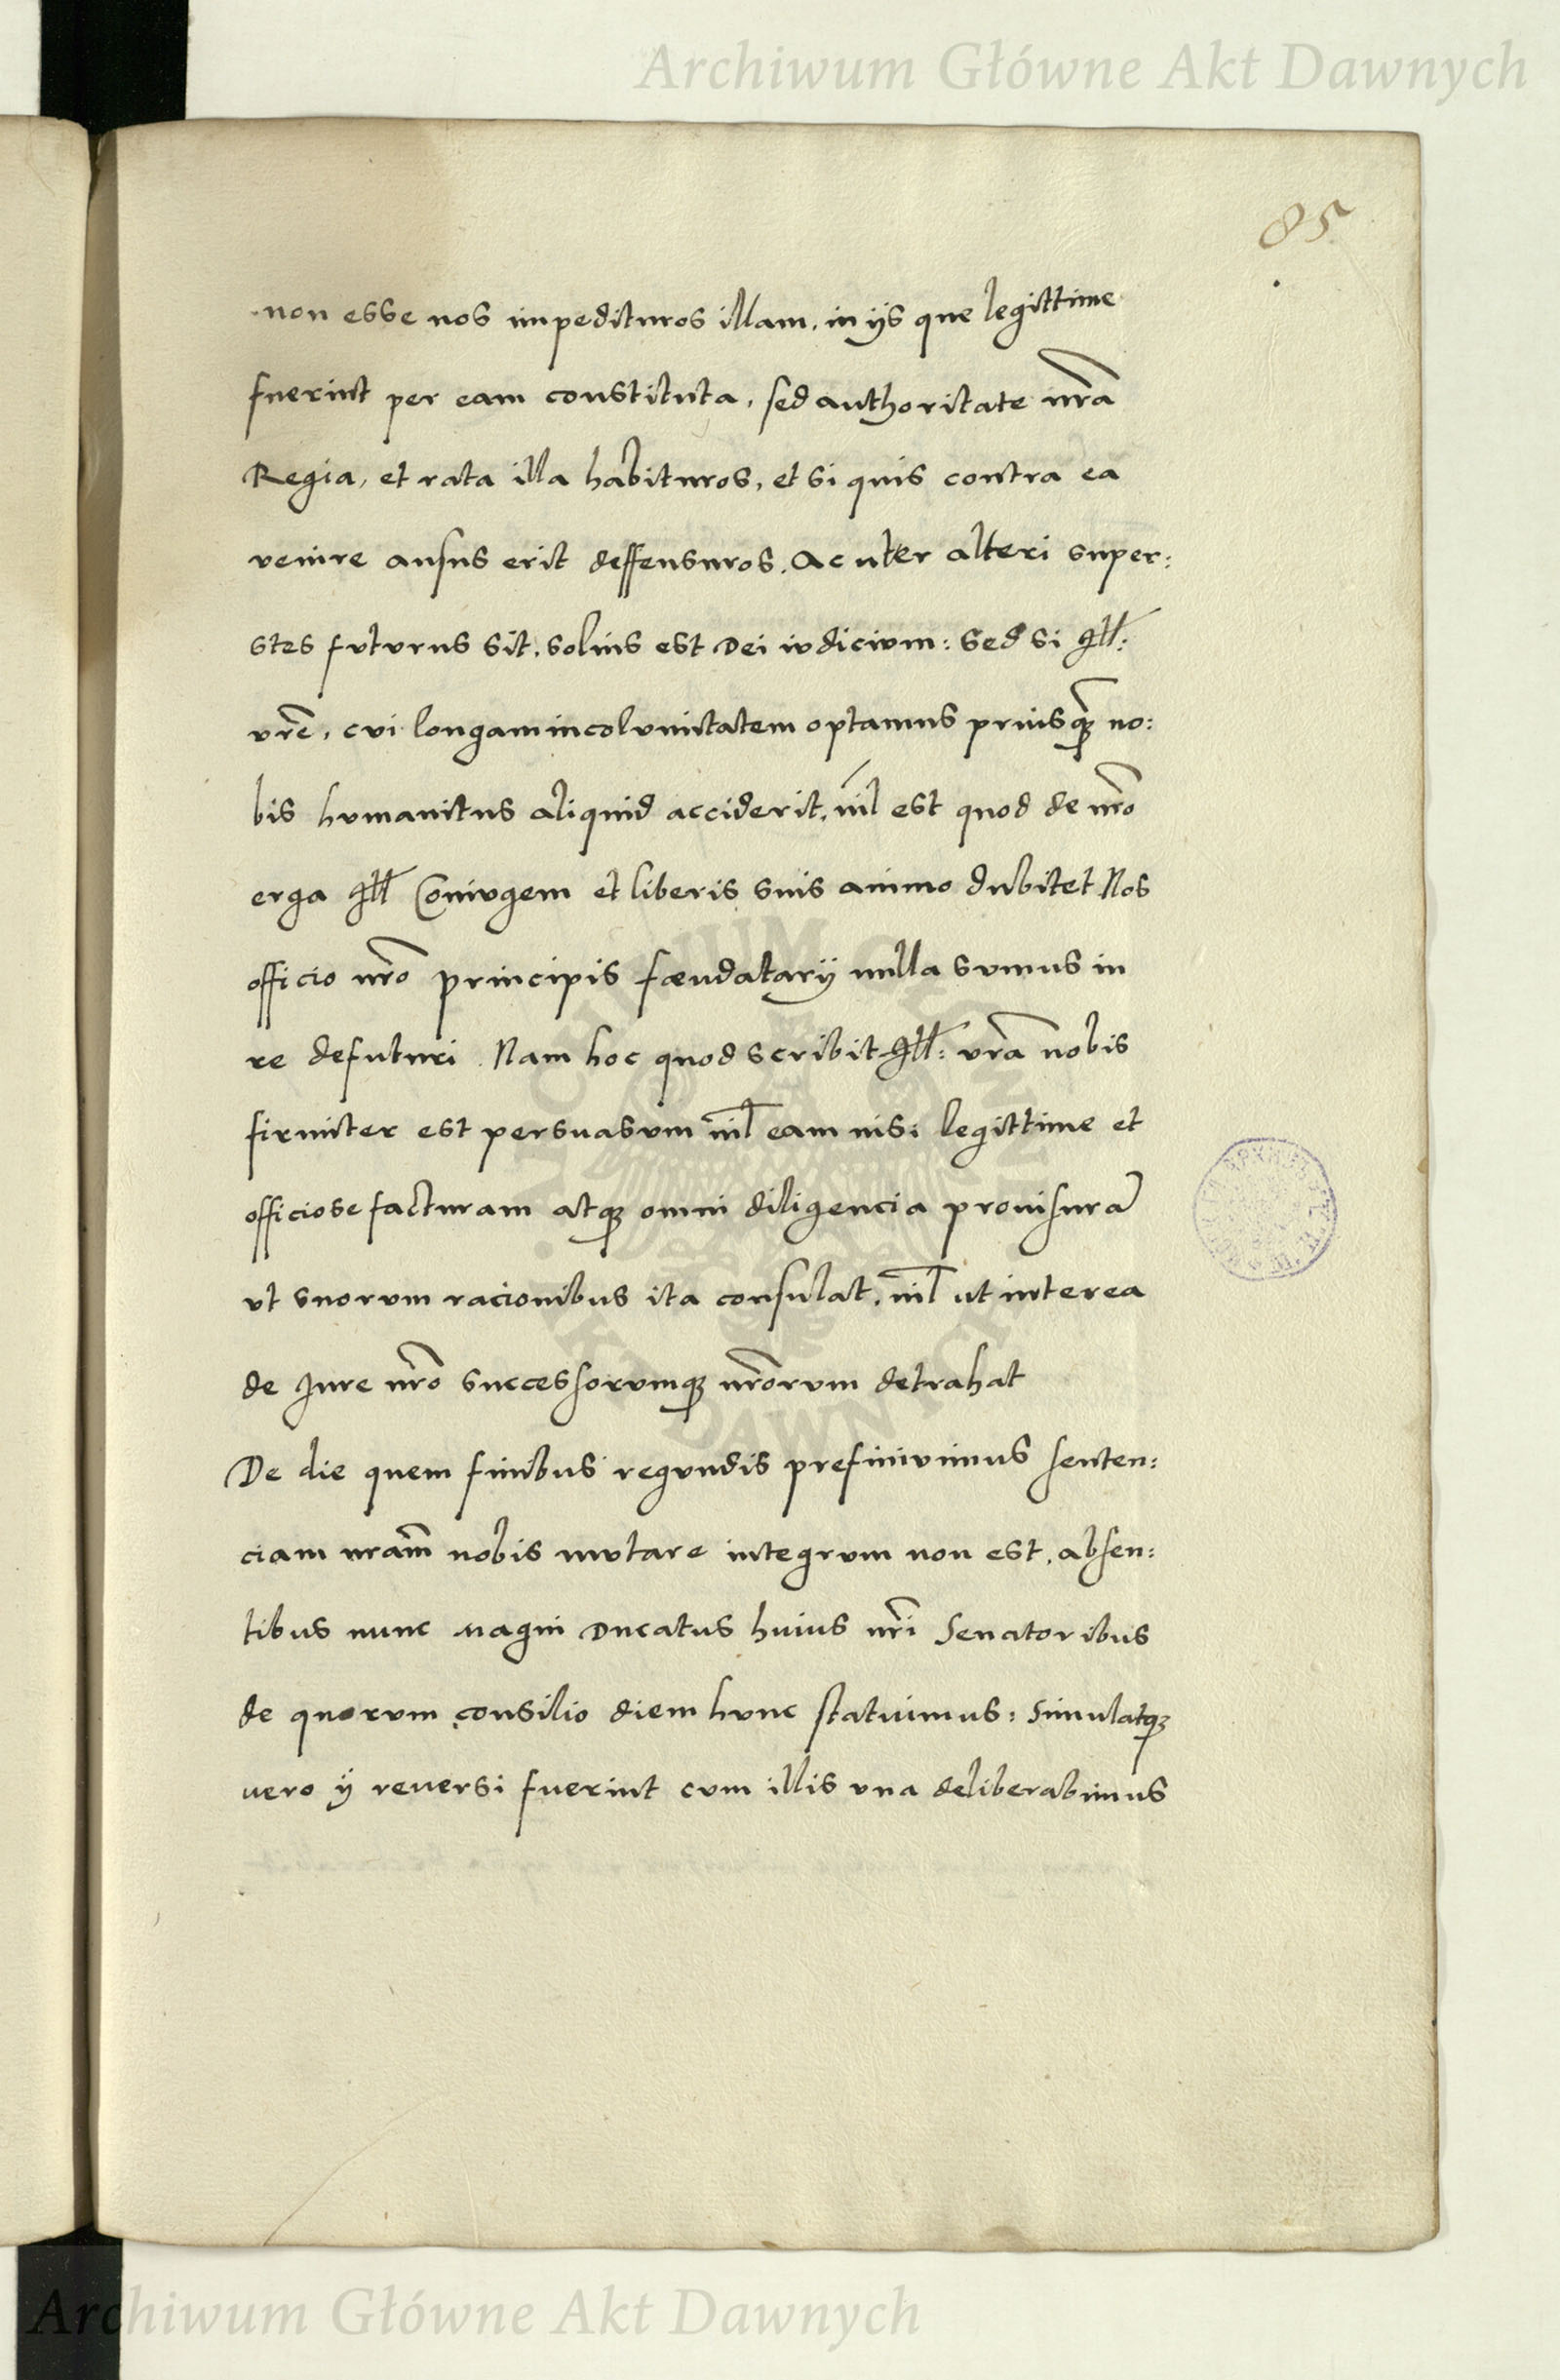 Archiwum Główne Akt Dawnych
85
non esse nos impedituros illam, in ijs que legittime
fuerint per eam constituta, sed authoritate nr̃a
Regia, et rata illa habituros, et si quis contra ea
venire ausus erit deffensuros. Ac uter alteri super:
stes fvtvrus sit, solius est Dei ivdicivm: Sed si Ill:
vrẽ, cvi longam incolvmitatem optamus priusq̃ no:
bis hvmanitus aliquid acciderit, nil est quod de nr̃o
erga Ill Conivgem et liberis suis animo dubitet Nos
officio nr̃o principis fœudatarij nulla svmus in
re defuturi. Nam hoc quod scribit Ill: vrã nobis
firmiter est persvasvm nil̃ eam nisi legittime et
officiose facturam atq; omni diligencia prouisurã
vt suorvm racionibus ita consulat, nil̃ ut interea
de Iure nr̃o successorvmq; nr̃orvm detrahat
De die quem finibus regvndis prefinivimus senten:
ciam nram̃ nobis mvtare integrvm non est, absen:
tibus nunc Magni Ducatus hvius nr̃i Senatoribus
de quorvm consilio diem hvnc statvimus: Simulatq;
vero ij reuersi fverint cvm illis vna deliberabimus
ARCHIWUM GŁÓWNE
AKT DAWNYCH
Archiwum Główne Akt Dawnych